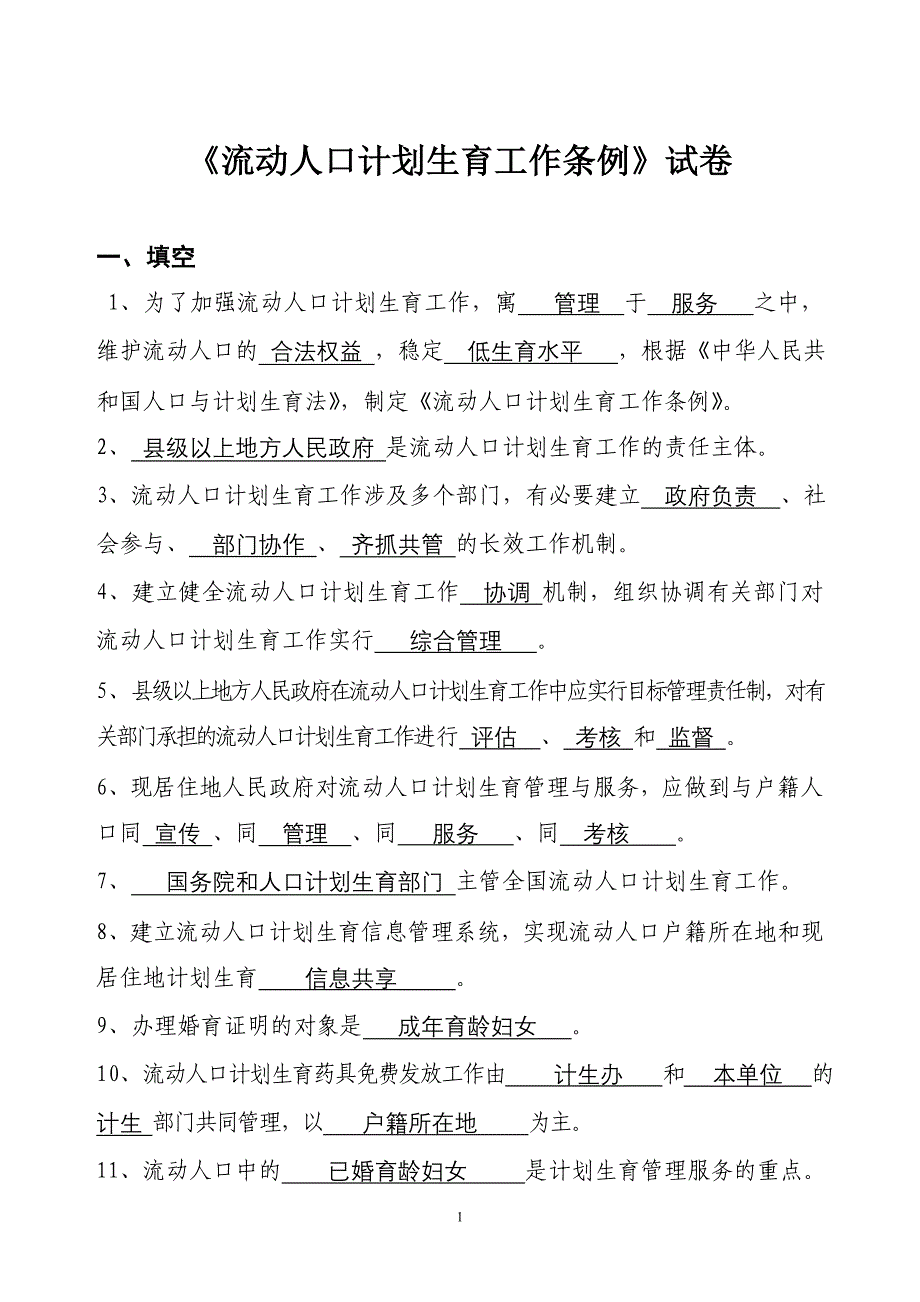 《流动人口计划生育工作条例》试卷
一、填空
1、为了加强流动人口计划生育工作，寓 管理 于 服务 之中，
维护流动人口的 合法权益 ，稳定 低生育水平 ，根据《中华人民共
和国人口与计划生育法》，制定《流动人口计划生育工作条例》。
2、 县级以上地方人民政府 是流动人口计划生育工作的责任主体。
3、流动人口计划生育工作涉及多个部门，有必要建立 政府负责 、社
会参与、 部门协作 、 齐抓共管 的长效工作机制。
4、建立健全流动人口计划生育工作 协调 机制，组织协调有关部门对
流动人口计划生育工作实行 综合管理 。
5、县级以上地方人民政府在流动人口计划生育工作中应实行目标管理责任制，对有
关部门承担的流动人口计划生育工作进行 评估 、 考核 和 监督 。
6、现居住地人民政府对流动人口计划生育管理与服务，应做到与户籍人
口同 宣传 、同 管理 、同 服务 、同 考核 。
7、 国务院和人口计划生育部门 主管全国流动人口计划生育工作。
8、建立流动人口计划生育信息管理系统，实现流动人口户籍所在地和现
居住地计划生育 信息共享 。
9、办理婚育证明的对象是 成年育龄妇女 。
10、流动人口计划生育药具免费发放工作由 计生办 和 本单位 的
计生 部门共同管理，以 户籍所在地 为主。
11、流动人口中的 已婚育龄妇女 是计划生育管理服务的重点。
1